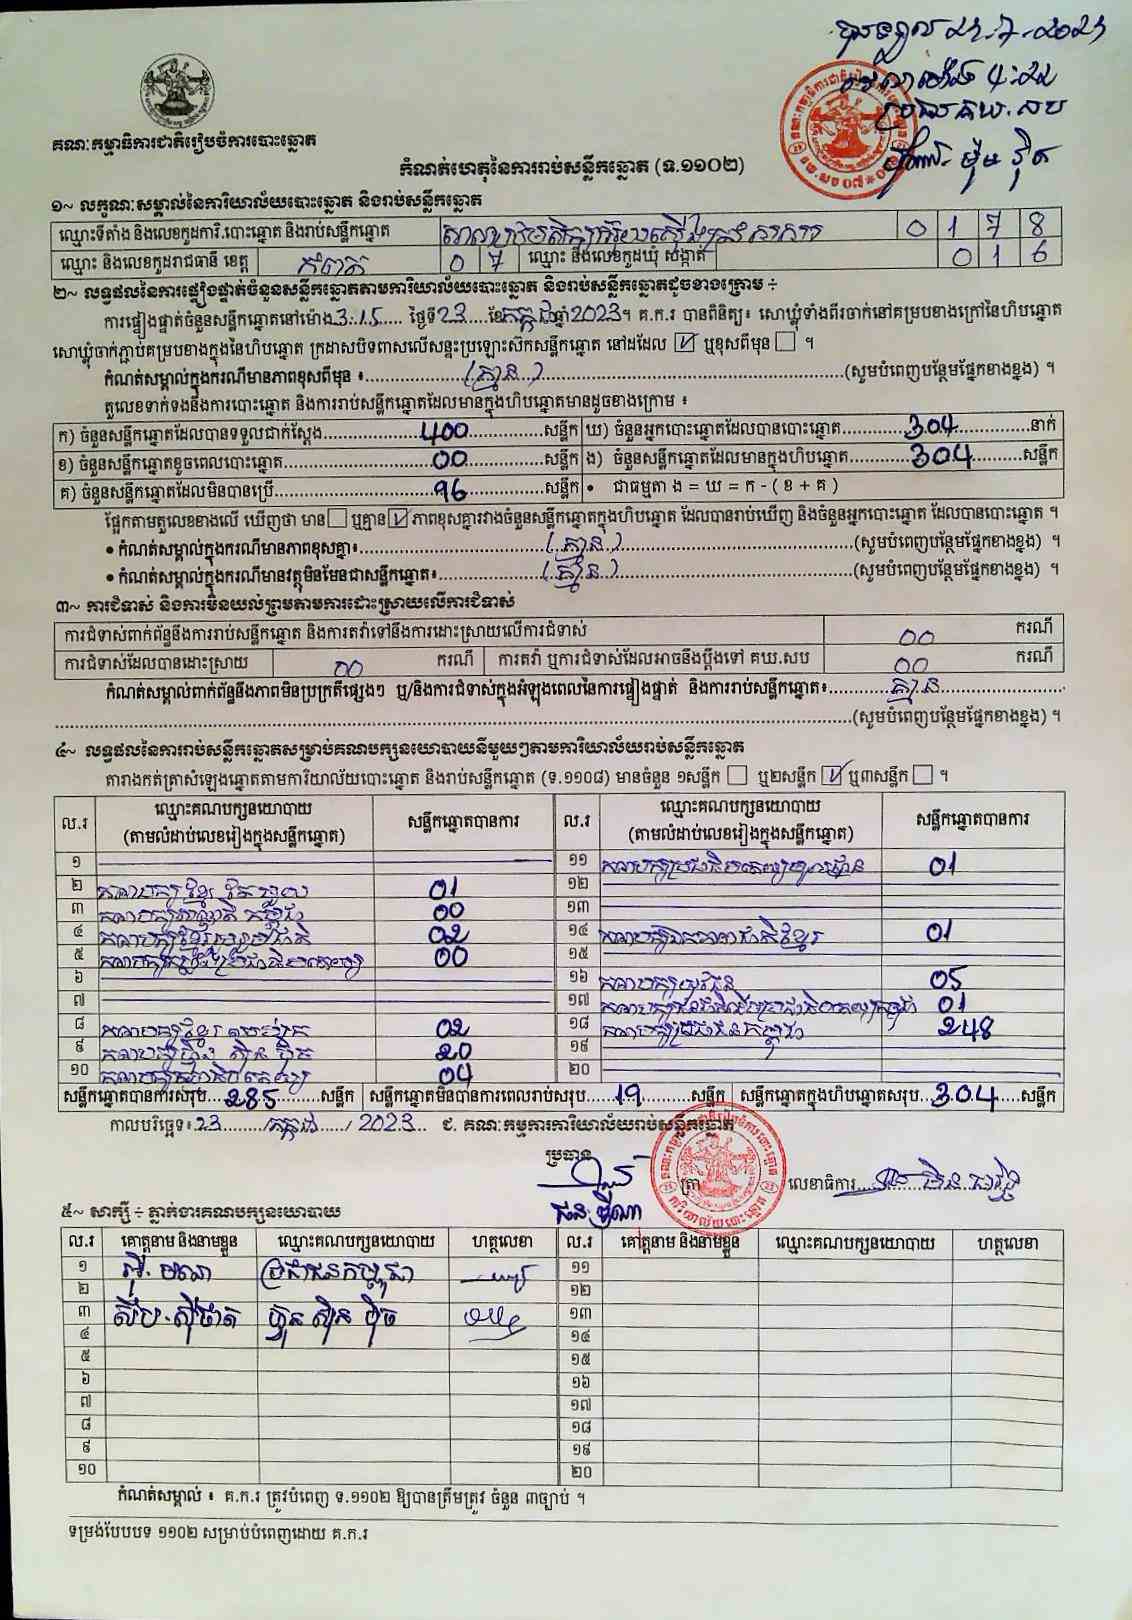 គណៈកម្មាធិការជាតិរៀបចំការបោះឆ្នោត
កំណត់ហេតុនៃការរាប់សន្លឹកឆ្នោត (ទ.១១០២)
១~ លក្ខណៈសម្គាល់នៃការិយាល័យបោះឆ្នោត និងរាប់សន្លឹកឆ្នោត
ឈ្មោះទីតាំង និងលេខកូដការិ.បោះឆ្នោត និងរាប់សន្លឹកឆ្នោត 0 1 7 8
ឈ្មោះ និងលេខកូដរាជធានី ខេត្ត កំពត 0 7 ឈ្មោះ និងលេខកូដឃុំ សង្កាត់ 0 1 6
២~ លទ្ធផលនៃការផ្ទៀងផ្ទាត់ចំនួនសន្លឹកឆ្នោតតាមការិយាល័យបោះឆ្នោត និងរាប់សន្លឹកឆ្នោតដូចខាងក្រោម ÷
ការផ្ទៀងផ្ទាត់ចំនួនសន្លឹកឆ្នោតនៅម៉ោង 3:15 ថ្ងៃទី 23 ខែ កក្កដា ឆ្នាំ 2023 ។ គ.ក.រ បានពិនិត្យ៖ សោឃ្លុំទាំងពីរចាក់នៅគម្របខាងក្រៅនៃហិបឆ្នោត
សោឃ្លុំចាក់ភ្ជាប់គម្របខាងក្នុងនៃហិបឆ្នោត ក្រដាសបិទពាសលើសន្ទះប្រឡោះសឹកសន្លឹកឆ្នោត នៅដដែល ☑ ឬខុសពីមុន ☐ ។
កំណត់សម្គាល់ក្នុងករណីមានភាពខុសពីមុន ៖ (គ្មាន) (សូមបំពេញបន្ថែមផ្នែកខាងខ្នង) ។
តួលេខទាក់ទងនឹងការបោះឆ្នោត និងការរាប់សន្លឹកឆ្នោតដែលមានក្នុងហិបឆ្នោតមានដូចខាងក្រោម ៖
ក) ចំនួនសន្លឹកឆ្នោតដែលបានទទួលជាក់ស្ដែង 400 សន្លឹក ឃ) ចំនួនអ្នកបោះឆ្នោតដែលបានបោះឆ្នោត 304 នាក់
ខ) ចំនួនសន្លឹកឆ្នោតខូចពេលបោះឆ្នោត 00 សន្លឹក ង) ចំនួនសន្លឹកឆ្នោតដែលមានក្នុងហិបឆ្នោត 304 សន្លឹក
គ) ចំនួនសន្លឹកឆ្នោតដែលមិនបានប្រើ 96 សន្លឹក • ជាធម្មតា ង = ឃ = ក - ( ខ + គ )
ផ្អែកតាមតួលេខខាងលើ ឃើញថា មាន ☐ ឬគ្មាន ☑ ភាពខុសគ្នារវាងចំនួនសន្លឹកឆ្នោតក្នុងហិបឆ្នោត ដែលបានរាប់ឃើញ និងចំនួនអ្នកបោះឆ្នោត ដែលបានបោះឆ្នោត ។
• កំណត់សម្គាល់ក្នុងករណីមានភាពខុសគ្នា៖ (គ្មាន) (សូមបំពេញបន្ថែមផ្នែកខាងខ្នង) ។
• កំណត់សម្គាល់ក្នុងករណីមានវត្ថុមិនមែនជាសន្លឹកឆ្នោត៖ (គ្មាន) (សូមបំពេញបន្ថែមផ្នែកខាងខ្នង) ។
៣~ ការជំទាស់ និងការមិនយល់ព្រមតាមការដោះស្រាយលើការជំទាស់
ការជំទាស់ពាក់ព័ន្ធនឹងការរាប់សន្លឹកឆ្នោត និងការតវ៉ាទៅនឹងការដោះស្រាយលើការជំទាស់ 00 ករណី
ការជំទាស់ដែលបានដោះស្រាយ 00 ករណី ការតវ៉ា ឬការជំទាស់ដែលអាចនឹងប្ដឹងទៅ គឃ.សប 00 ករណី
កំណត់សម្គាល់ពាក់ព័ន្ធនឹងភាពមិនប្រក្រតីផ្សេងៗ ឬ/និងការជំទាស់ក្នុងអំឡុងពេលនៃការផ្ទៀងផ្ទាត់ និងការរាប់សន្លឹកឆ្នោត៖ គ្មាន
(សូមបំពេញបន្ថែមផ្នែកខាងខ្នង) ។
៤~ លទ្ធផលនៃការរាប់សន្លឹកឆ្នោតសម្រាប់គណបក្សនយោបាយនីមួយៗតាមការិយាល័យរាប់សន្លឹកឆ្នោត
តារាងកត់ត្រាសំឡេងឆ្នោតតាមការិយាល័យបោះឆ្នោត និងរាប់សន្លឹកឆ្នោត (ទ.១១០៨) មានចំនួន ១សន្លឹក ☐ ឬ២សន្លឹក ☑ ឬ៣សន្លឹក ☐ ។
ល.រ ឈ្មោះគណបក្សនយោបាយ (តាមលំដាប់លេខរៀងក្នុងសន្លឹកឆ្នោត) សន្លឹកឆ្នោតបានការ ល.រ ឈ្មោះគណបក្សនយោបាយ (តាមលំដាប់លេខរៀងក្នុងសន្លឹកឆ្នោត) សន្លឹកឆ្នោតបានការ
១ ១១ 01
២ 01 ១២
៣ 00 ១៣
៤ គណបក្សខ្មែររួបរួមជាតិ 02 ១៤ 01
៥ 00 ១៥
៦ ១៦ គណបក្សយុវជន 05
៧ ១៧ 01
៨ 02 ១៨ គណបក្សប្រជាជនកម្ពុជា 248
៩ គណបក្សហ៊្វុនស៊ិនប៉ិច 20 ១៩
១០ 04 ២០
សន្លឹកឆ្នោតបានការសរុប 285 សន្លឹក សន្លឹកឆ្នោតមិនបានការពេលរាប់សរុប 19 សន្លឹក សន្លឹកឆ្នោតក្នុងហិបឆ្នោតសរុប 304 សន្លឹក
កាលបរិច្ឆេទ៖ 23 / កក្កដា / 2023 ជ. គណៈកម្មការការិយាល័យរាប់សន្លឹកឆ្នោត
ប្រធាន
ត្រា លេខាធិការ
៥~ សាក្សី ÷ ភ្នាក់ងារគណបក្សនយោបាយ
ល.រ គោត្តនាម និងនាមខ្លួន ឈ្មោះគណបក្សនយោបាយ ហត្ថលេខា ល.រ គោត្តនាម និងនាមខ្លួន ឈ្មោះគណបក្សនយោបាយ ហត្ថលេខា
១ ប្រជាជនកម្ពុជា ១១
២ ១២
៣ ហ៊្វុន ស៊ិន ប៉ិច ១៣
៤ ១៤
៥ ១៥
៦ ១៦
៧ ១៧
៨ ១៨
៩ ១៩
១០ ២០
កំណត់សម្គាល់ ៖ គ.ក.រ ត្រូវបំពេញ ទ.១១០២ ឱ្យបានត្រឹមត្រូវ ចំនួន ៣ច្បាប់ ។
ទម្រង់បែបបទ ១១០២ សម្រាប់បំពេញដោយ គ.ក.រ